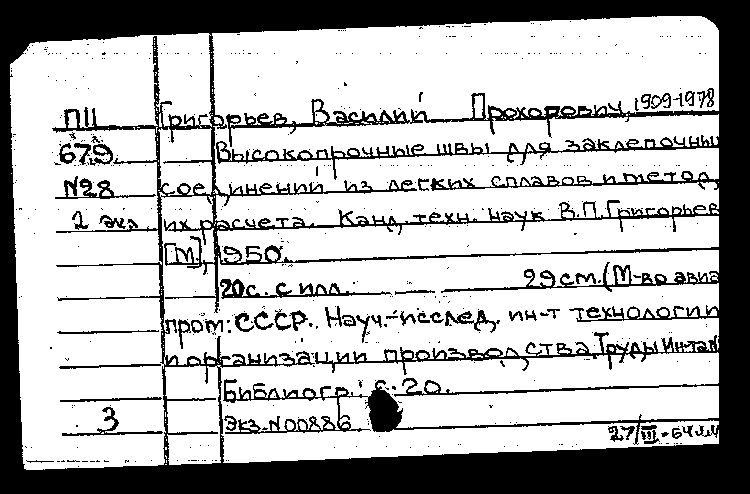 П11 Григорьев, Василий Прохорович, 1909-1978
679. Высокопрочные швы для заклепочны
N28 соединений из легких сплавов и метод,
2 экл. их расчета. Канд. техн. наук В.П.Григорьев
[М], 1950.
20с. с илл. 29см. (М-во авиа
пром. СССР. Науч.-исслед. ин-т технологии
и организации производства. Труды Ин-та N
Библиогр.: с. 20.
3 Экз. N00886
27/III-64